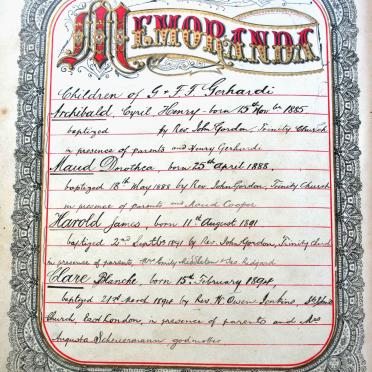 MEMORANDA
Children of G & F. F. Gerhardi
Archibald Cyril Henry - born 15th Novber 1885
baptized by Rev. John Gordon, Trinity Church
in presence of parents and Henry Gerhardi
Maud Dorothea, born 25th April 1888.
baptized 18th May 1888 by Rev. John Gordon, Trinity Church
in presence of parents and Maud Cooper
Harold James born 11th August 1891
baptized 2nd Septbr 1891 by Rev. John Gordon, Trinity Church
in presence of parents, Mrs Emily Middleton & Geo Ridgard
Clare Blanche born 15th February 1894,
baptized 21st March 1894 by Rev W. Owen Jenkins, St
Church, East London, in presence of parents and Mrs
Augusta Scheuermann godmother